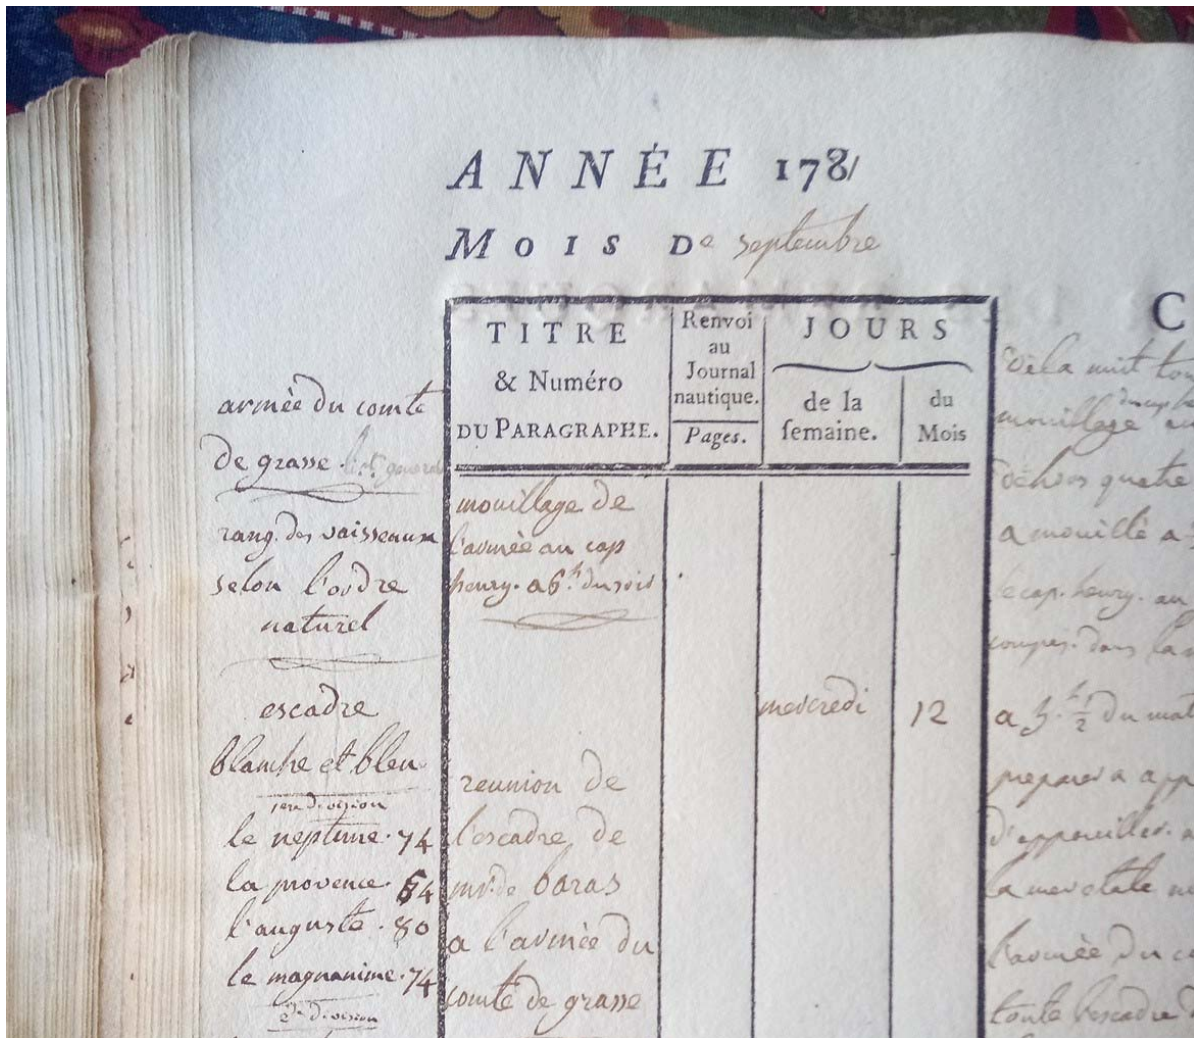 ANNÉE 1781
MOIS De septembre
armée du comte
de grasse.
rang. des vaisseaux
selon l'ordre
naturel
escadre
blanche et bleu
1ere division
le neptune. 74
la provence. 64
l'auguste. 80
le magnanime. 74
2e division
TITRE
& Numéro
DU PARAGRAPHE.
Renvoi
au
Journal
nautique.
Pages.
JOURS
de la
semaine.
du
Mois
mouillage de
l'armée au cap
henry. a 6h. du soir
mercredi 12
reunion de
l'escadre de
mr. de baras
a l'armée du
comte de grasse
C
mouillage
dehors quatre
a mouillé a
le cap. henry. au
dans la
a 3. h 1/2 du mat
preparer a app
d'appareiller.
la mer etale
l'armée du c
toute l'escadre d